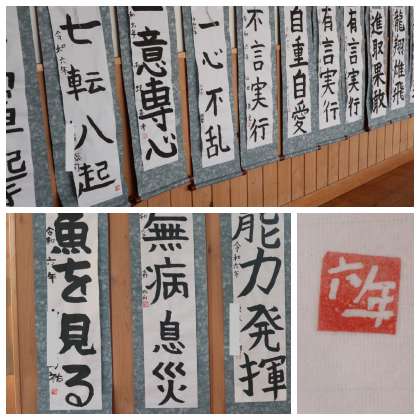 七転八起
令和六年
一意専心
一心不乱
不言実行
自重自愛
有言実行
有言実行
進取果敢
龍翔雄飛
魚を見る
令和六年
無病息災
能力発揮
令和六年
六年